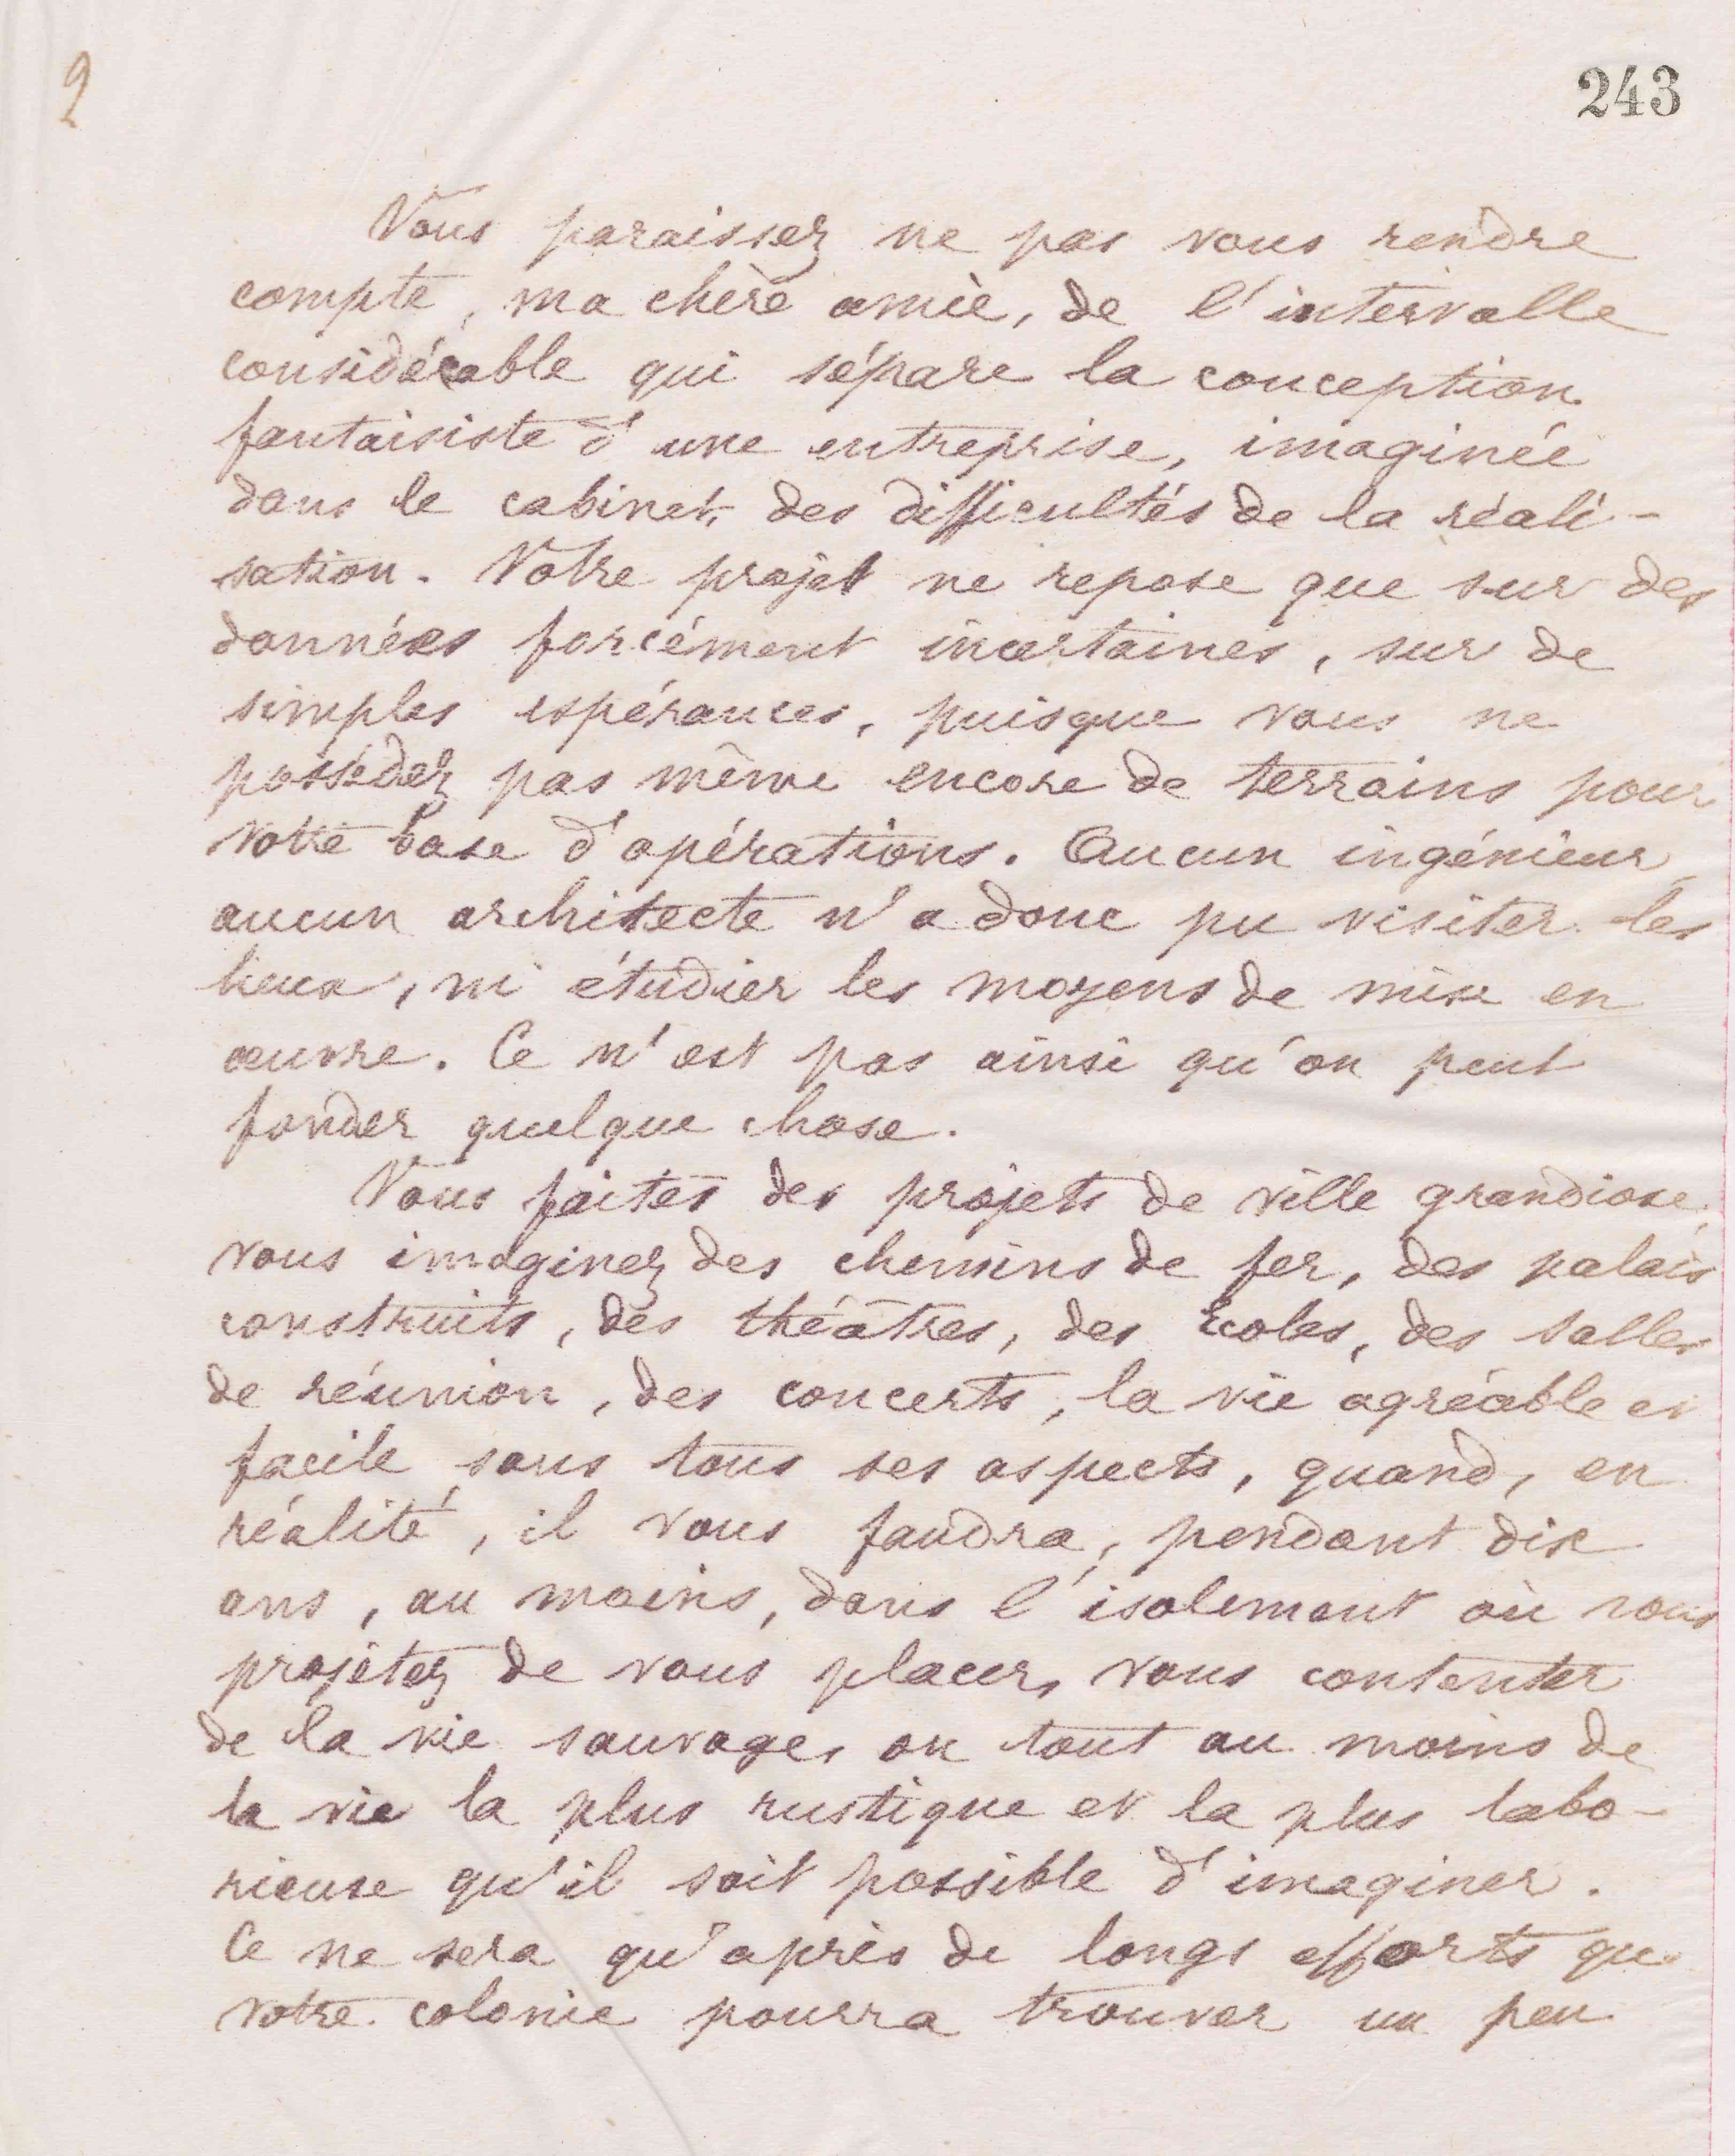 2
243
Vous paraissez ne pas vous rendre
compte, ma chère amie, de l'intervalle
considérable qui sépare la conception
fantaisiste d'une entreprise, imaginée
dans le cabinet, des difficultés de la réali-
sation. Votre projet ne repose que sur des
données forcément incertaines, sur de
simples espérances, puisque vous ne
possédez pas même encore de terrains pour
votre base d'opérations. Aucun ingénieur,
aucun architecte n'a donc pu visiter les
lieux, ni étudier les moyens de mise en
œuvre. Ce n'est pas ainsi qu'on peut
fonder quelque chose.
Vous faites des projets de ville grandiose,
vous imaginez des chemins de fer, des palais
construits, des théâtres, des écoles, des salles
de réunion, des concerts, la vie agréable et
facile sous tous ses aspects, quand, en
réalité, il vous faudra, pendant dix
ans, au moins, dans l'isolement où vous
projetez de vous placer, vous contenter
de la vie sauvage, ou tout au moins de
la vie la plus rustique et la plus labo-
rieuse qu'il soit possible d'imaginer.
Ce ne sera qu'après de longs efforts que
votre colonie pourra trouver un peu